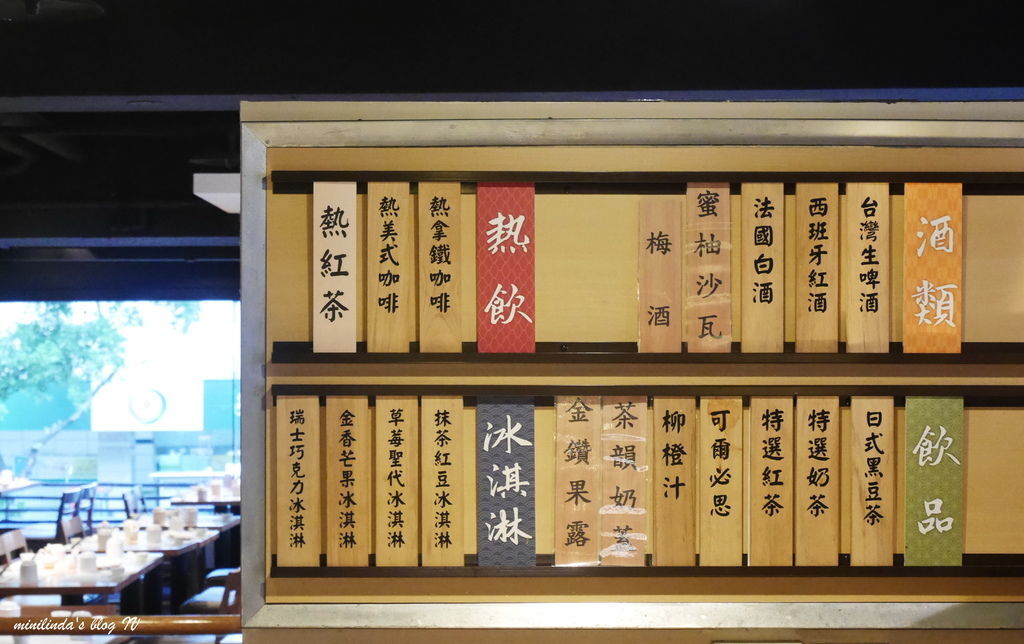 酒類
台灣生啤酒
西班牙紅酒
法國白酒
蜜柚沙瓦
梅酒
熱飲
熱拿鐵咖啡
熱美式咖啡
熱紅茶
飲品
日式黑豆茶
特選奶茶
特選紅茶
可爾必思
柳橙汁
茶韻奶蓋
金鑽果露
冰淇淋
抹茶紅豆冰淇淋
草莓聖代冰淇淋
金香芒果冰淇淋
瑞士巧克力冰淇淋
minilinda's blog IV